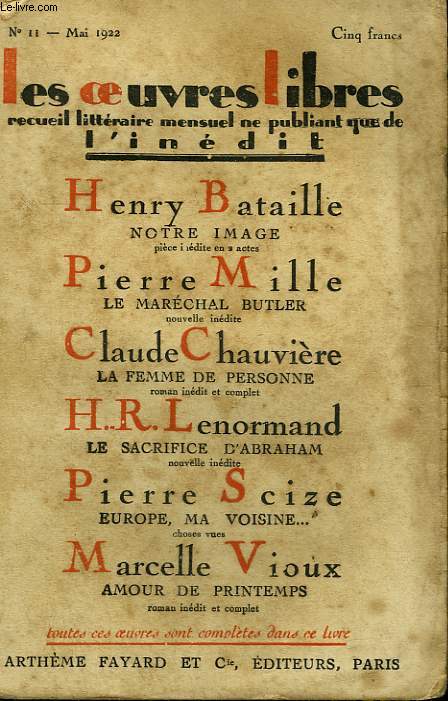 le-livre.com
N° 11 — Mai 1922 Cinq francs
les œuvres libres
recueil littéraire mensuel ne publiant que de
l'inédit
Henry Bataille
NOTRE IMAGE
pièce inédite en 2 actes
Pierre Mille
LE MARÉCHAL BUTLER
nouvelle inédite
Claude Chauvière
LA FEMME DE PERSONNE
roman inédit et complet
H.-R. Lenormand
LE SACRIFICE D'ABRAHAM
nouvelle inédite
Pierre Scize
EUROPE, MA VOISINE...
choses vues
Marcelle Vioux
AMOUR DE PRINTEMPS
roman inédit et complet
toutes ces œuvres sont complètes dans ce livre
ARTHÈME FAYARD ET Cie, ÉDITEURS, PARIS